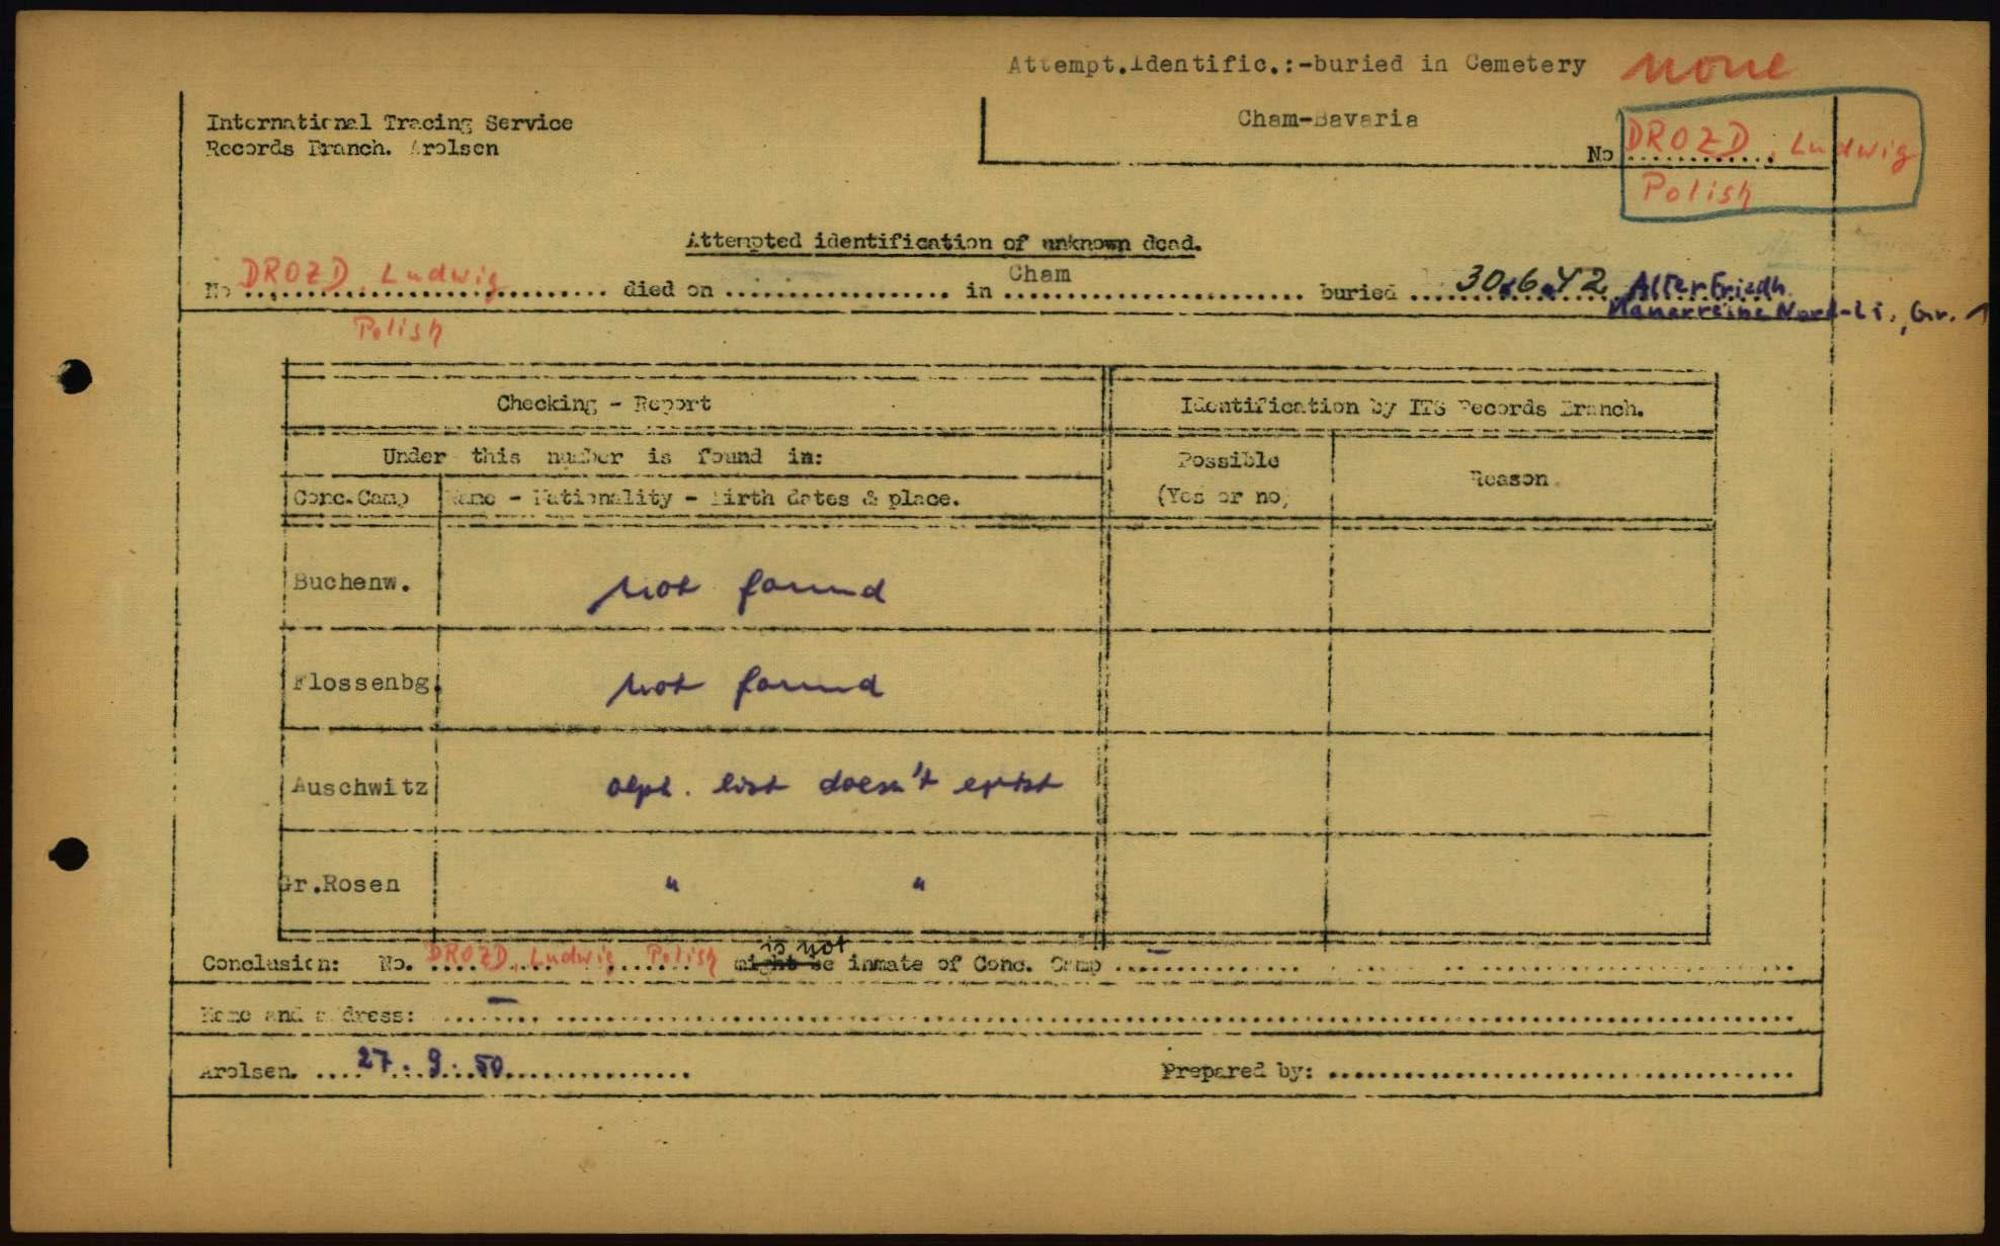 Attempt.Identific.:-buried in Cemetery none
Cham-Bavaria
International Tracing Service
Records Branch. Arolsen
No DROZD, Ludwig
Polish
Attempted identification of unknown dead.
No DROZD, Ludwig died on .................... in Cham buried 30.6.42 Alter Friedh.
Polish
Mauerreihe Nord-Li., Gr. 1
Checking - Report
Identification by ITS Records Branch.
Under this number is found in:
Possible
(Yes or no)
Reason.
Conc.Camp
Name - Nationality - Birth dates & place.
Buchenw. not found
Flossenbg. not found
Auschwitz alph. list doesn't exist
Gr.Rosen " "
is not
Conclusion: No. DROZD, Ludwig Polish might be inmate of Conc. Camp —
Name and address: —
Arolsen. 27.9.50
Prepared by: